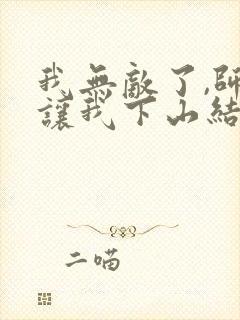 我無敵了,師
讓我下山結
二喵